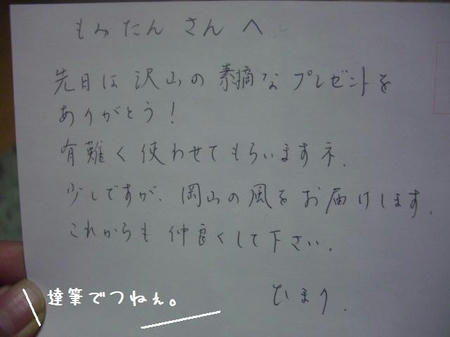 もみたん さん へ
先日は 沢山の 素摘な プレゼントを
ありがとう！
有難く 使わせて もらいますネ．
少しですが、岡山の風を お届けします．
これからも 仲良くして 下さい．
ひまり．
達筆でつねぇ。